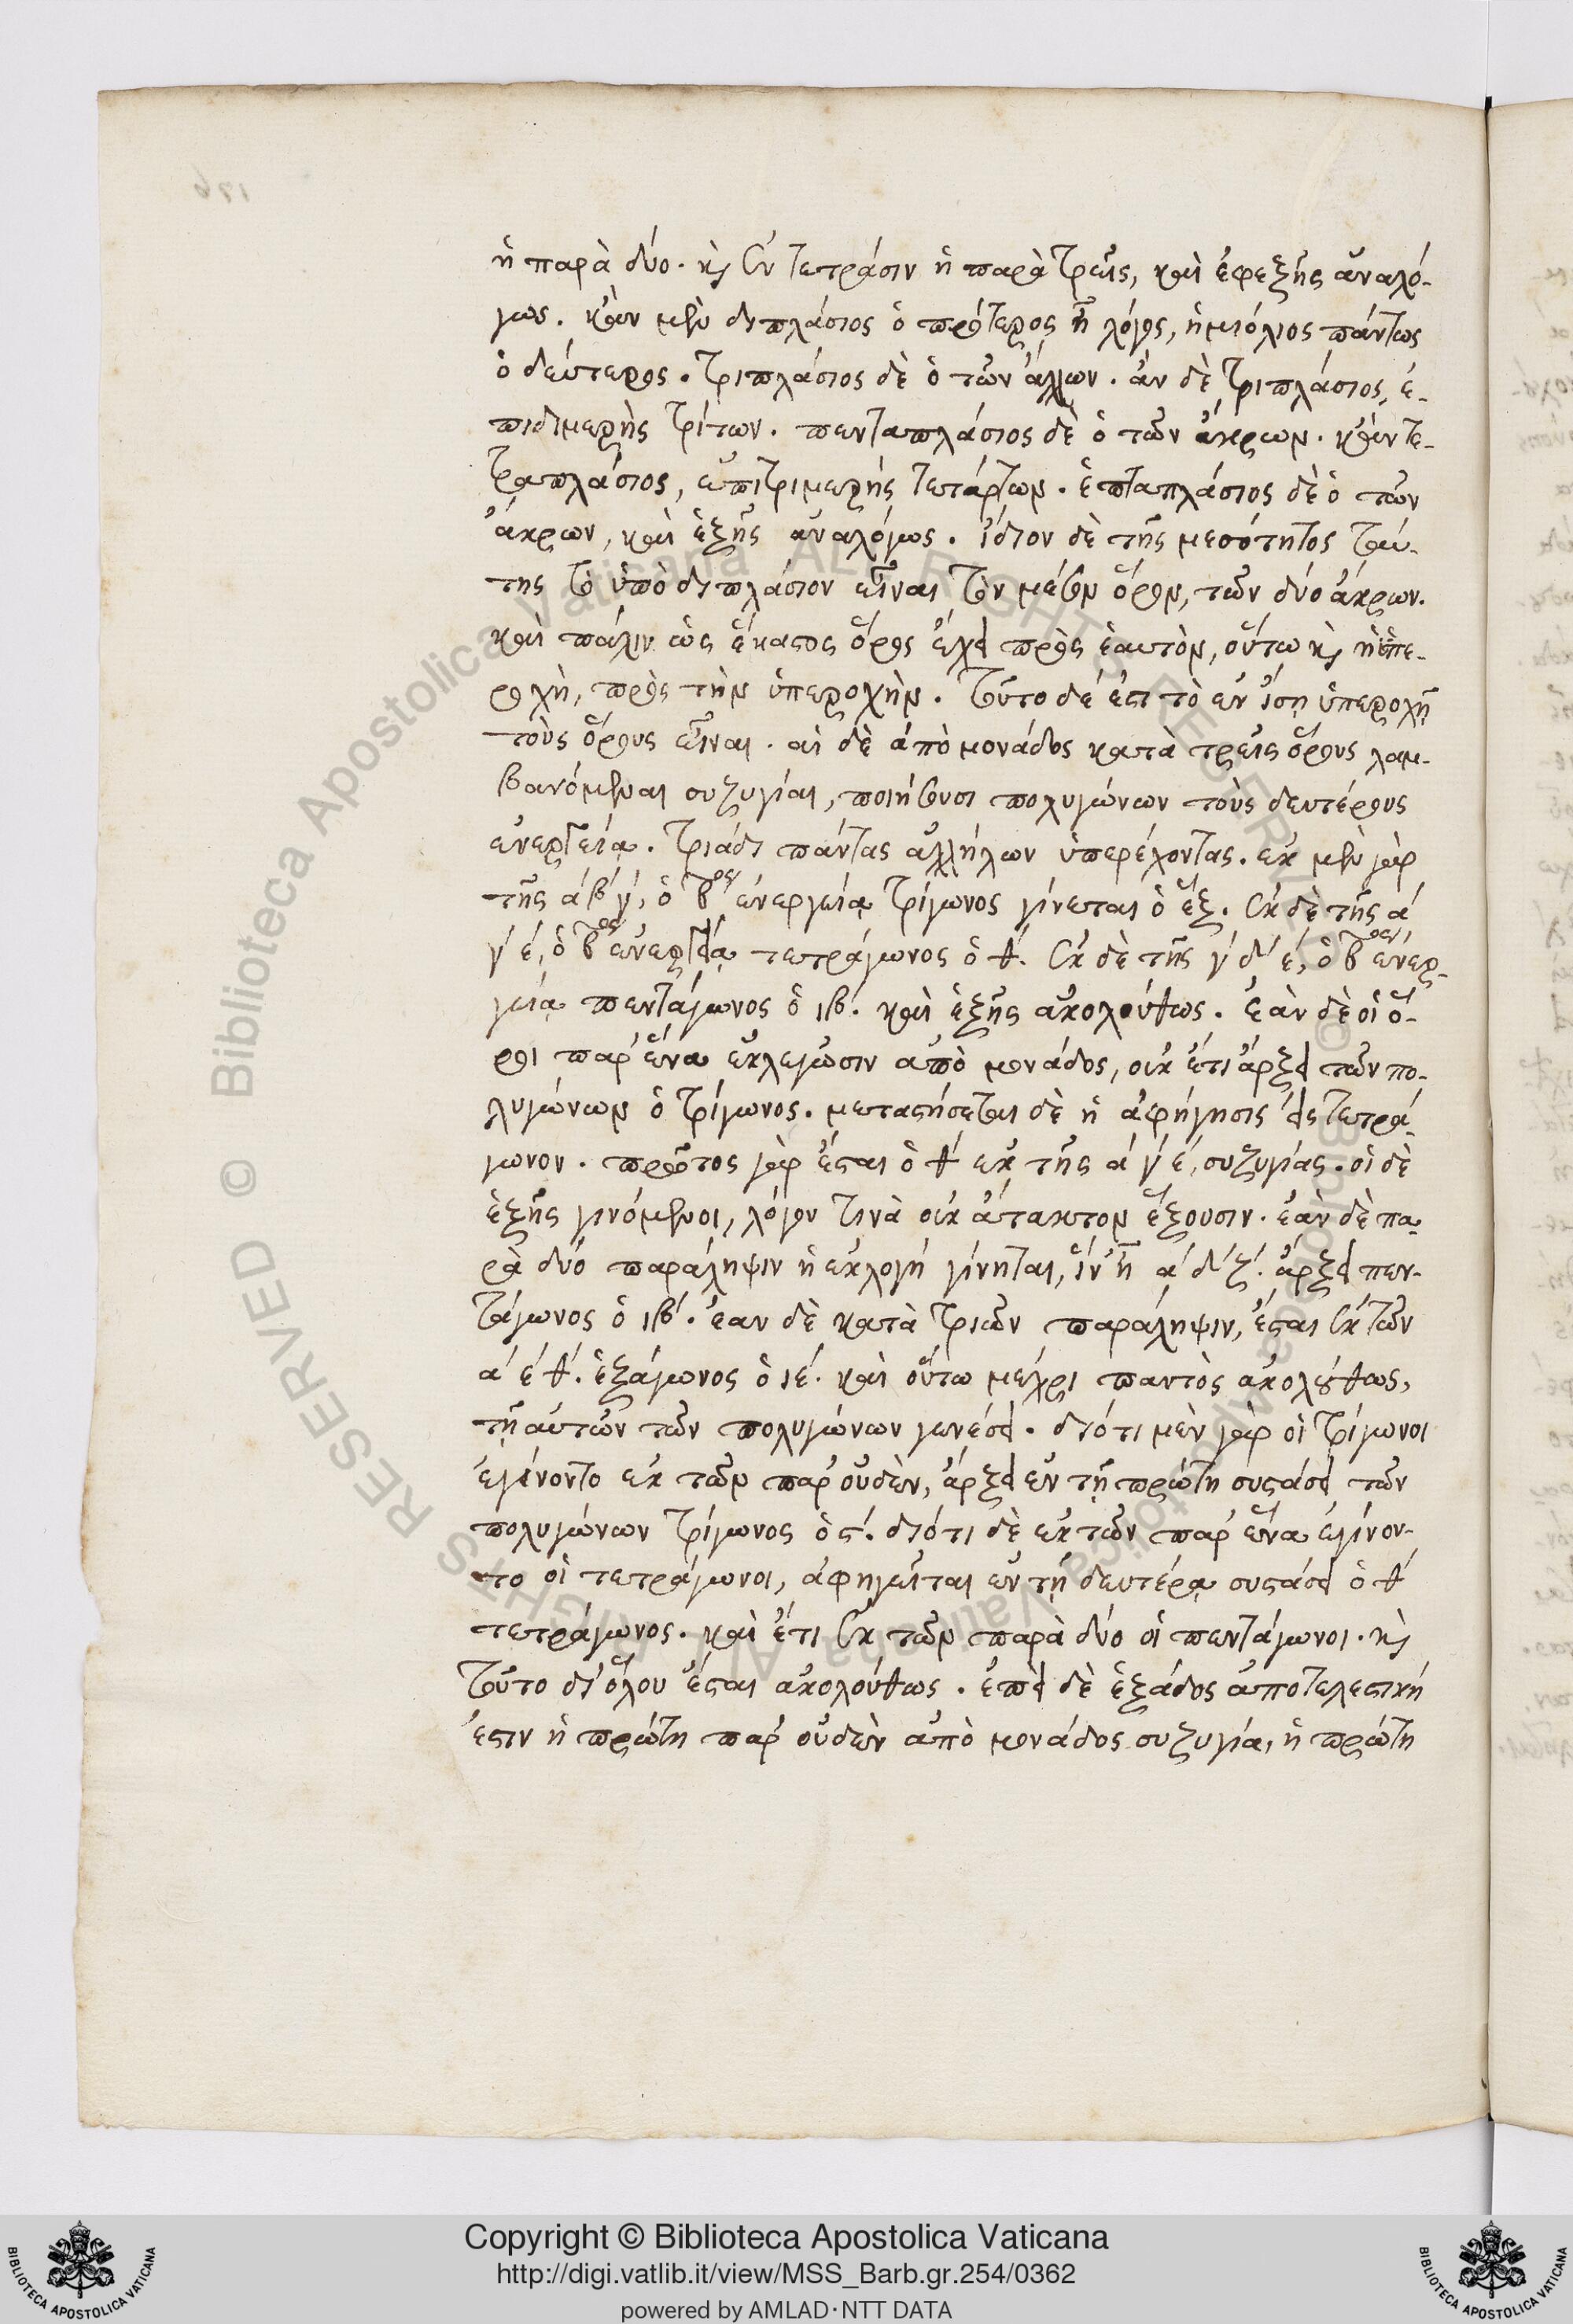 ἢ παρὰ δύο. καὶ ἐν τετράσιν ἢ παρὰ τρεῖς, καὶ ἐφεξῆς ἀναλό-
γως. κἂν μὲν διπλάσιος ὁ πρότερος ᾖ λόγος, ἡμιόλιος πάντως
ὁ δεύτερος. τριπλάσιος δὲ ὁ τῶν ἄλλων. ἂν δὲ τριπλάσιος, ἐ-
πιδιμερὴς τρίτων. πενταπλάσιος δὲ ὁ τῶν ἄκρων. κἂν τε-
τραπλάσιος, ἐπιτριμερής τετάρτων. ἑπταπλάσιος δὲ ὁ τῶν
ἄκρων, καὶ ἑξῆς ἀναλόγως. ἴδιον δὲ τῆς μεσότητος ταύ-
της τὸ ὑπὸ διπλάσιον εἶναι τὸν μέσον ὅρον, τῶν δύο ἄκρων.
καὶ πάλιν ὡς ἕκαστος ὅρος ἔχει πρὸς ἑαυτὸν, οὕτω καὶ ἡ ὑπε-
ροχὴ, πρὸς τὴν ὑπεροχὴν. τοῦτο δέ ἐστι τὸ ἐν ἴσῃ ὑπεροχῇ
τοὺς ὅρους εἶναι. αἱ δὲ ἀπὸ μονάδος κατὰ τρεῖς ὅρους λαμ-
βανόμεναι συζυγίαι, ποιήσουσι πολυγώνων τοὺς δευτέρους
ἐνεργείᾳ. τριάδι πάντας ἀλλήλων ὑπερέχοντας. ἐκ μὲν γὰρ
τῆς α΄ β΄ γ΄, ὁ β^ος ἐνεργείᾳ τρίγωνος γίνεται ὁ ἕξ. ἐκ δὲ τῆς α΄
γ΄ ε΄, ὁ β^ος ἐνεργείᾳ τετράγωνος ὁ θ΄. ἐκ δὲ τῆς γ΄ δ΄ ε΄, ὁ β^ος ἐνερ-
γείᾳ πεντάγωνος ὁ ιβ΄. καὶ ἑξῆς ἀκολούθως. ἐὰν δὲ οἱ ὅ-
ροι παρ' ἕνα ἐκλεγῶσιν ἀπὸ μονάδος, οὐκ ἔτι ἄρξει τῶν πο-
λυγώνων ὁ τρίγωνος. μεταστήσεται δὲ ἡ ἀφήγησις εἰς τετρά-
γωνον. πρῶτος γὰρ ἔσται ὁ θ΄ ἐκ τῆς α΄ γ΄ ε΄, συζυγίας. οἱ δὲ
ἑξῆς γινόμενοι, λόγον τινὰ οὐκ ἄτακτον ἕξουσιν. ἐὰν δὲ πα-
ρὰ δύο παράληψιν ἡ ἐκλογή γίνηται, ἵν' ᾖ α΄ δ΄ ζ΄. ἄρξει πεν-
τάγωνος ὁ ιβ΄. ἐαν δὲ κατὰ τριῶν παράληψιν, ἔσται ἐκ τῶν
α΄ ε΄ θ΄. ἑξάγωνος ὁ ιε΄. καὶ οὕτω μέχρι παντὸς ἀκολούθως,
τῇ αὐτῶν τῶν πολυγώνων γενέσει. διότι μὲν γὰρ οἱ τρίγωνοι
ἐγίνοντο ἐκ τῶν παρ' οὐδὲν, ἄρξει ἐν τῇ πρώτῃ συστάσει τῶν
πολυγώνων τρίγωνος ὁ ϛ΄. διότι δὲ ἐκ τῶν παρ' ἕνα ἐγίνον-
το οἱ τετράγωνοι, ἀφηγεῖται ἐν τῇ δευτέρᾳ συστάσει ὁ θ΄
τετράγωνος. καὶ ἔτι ἐκ τῶν παρὰ δύο οἱ πεντάγωνοι. καὶ
τοῦτο δι' ὅλου ἔσται ἀκολούθως. ἐπεὶ δὲ ἑξάδος ἀποτελεστική
ἐστιν ἡ πρώτη παρ' οὐδὲν ἀπὸ μονάδος συζυγία, ἡ πρώτη
Copyright © Biblioteca Apostolica Vaticana
http://digi.vatlib.it/view/MSS_Barb.gr.254/0362
powered by AMLAD·NTT DATA